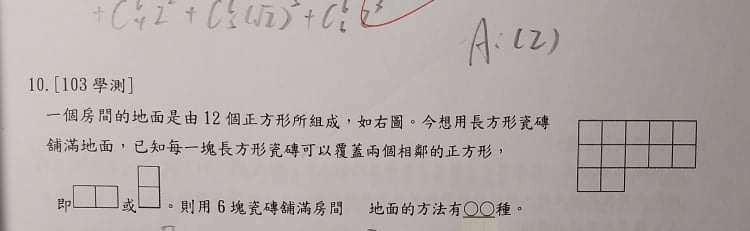 +C⁶₄ 2² + C⁶₅ (√2)⁵ + C⁶₆ 2³
A:(2)
10.[103 學測]
一個房間的地面是由 12 個正方形所組成，如右圖。今想用長方形瓷磚
舖滿地面，已知每一塊長方形瓷磚可以覆蓋兩個相鄰的正方形，
即 或 。則用 6 塊瓷磚舖滿房間 地面的方法有○○種。